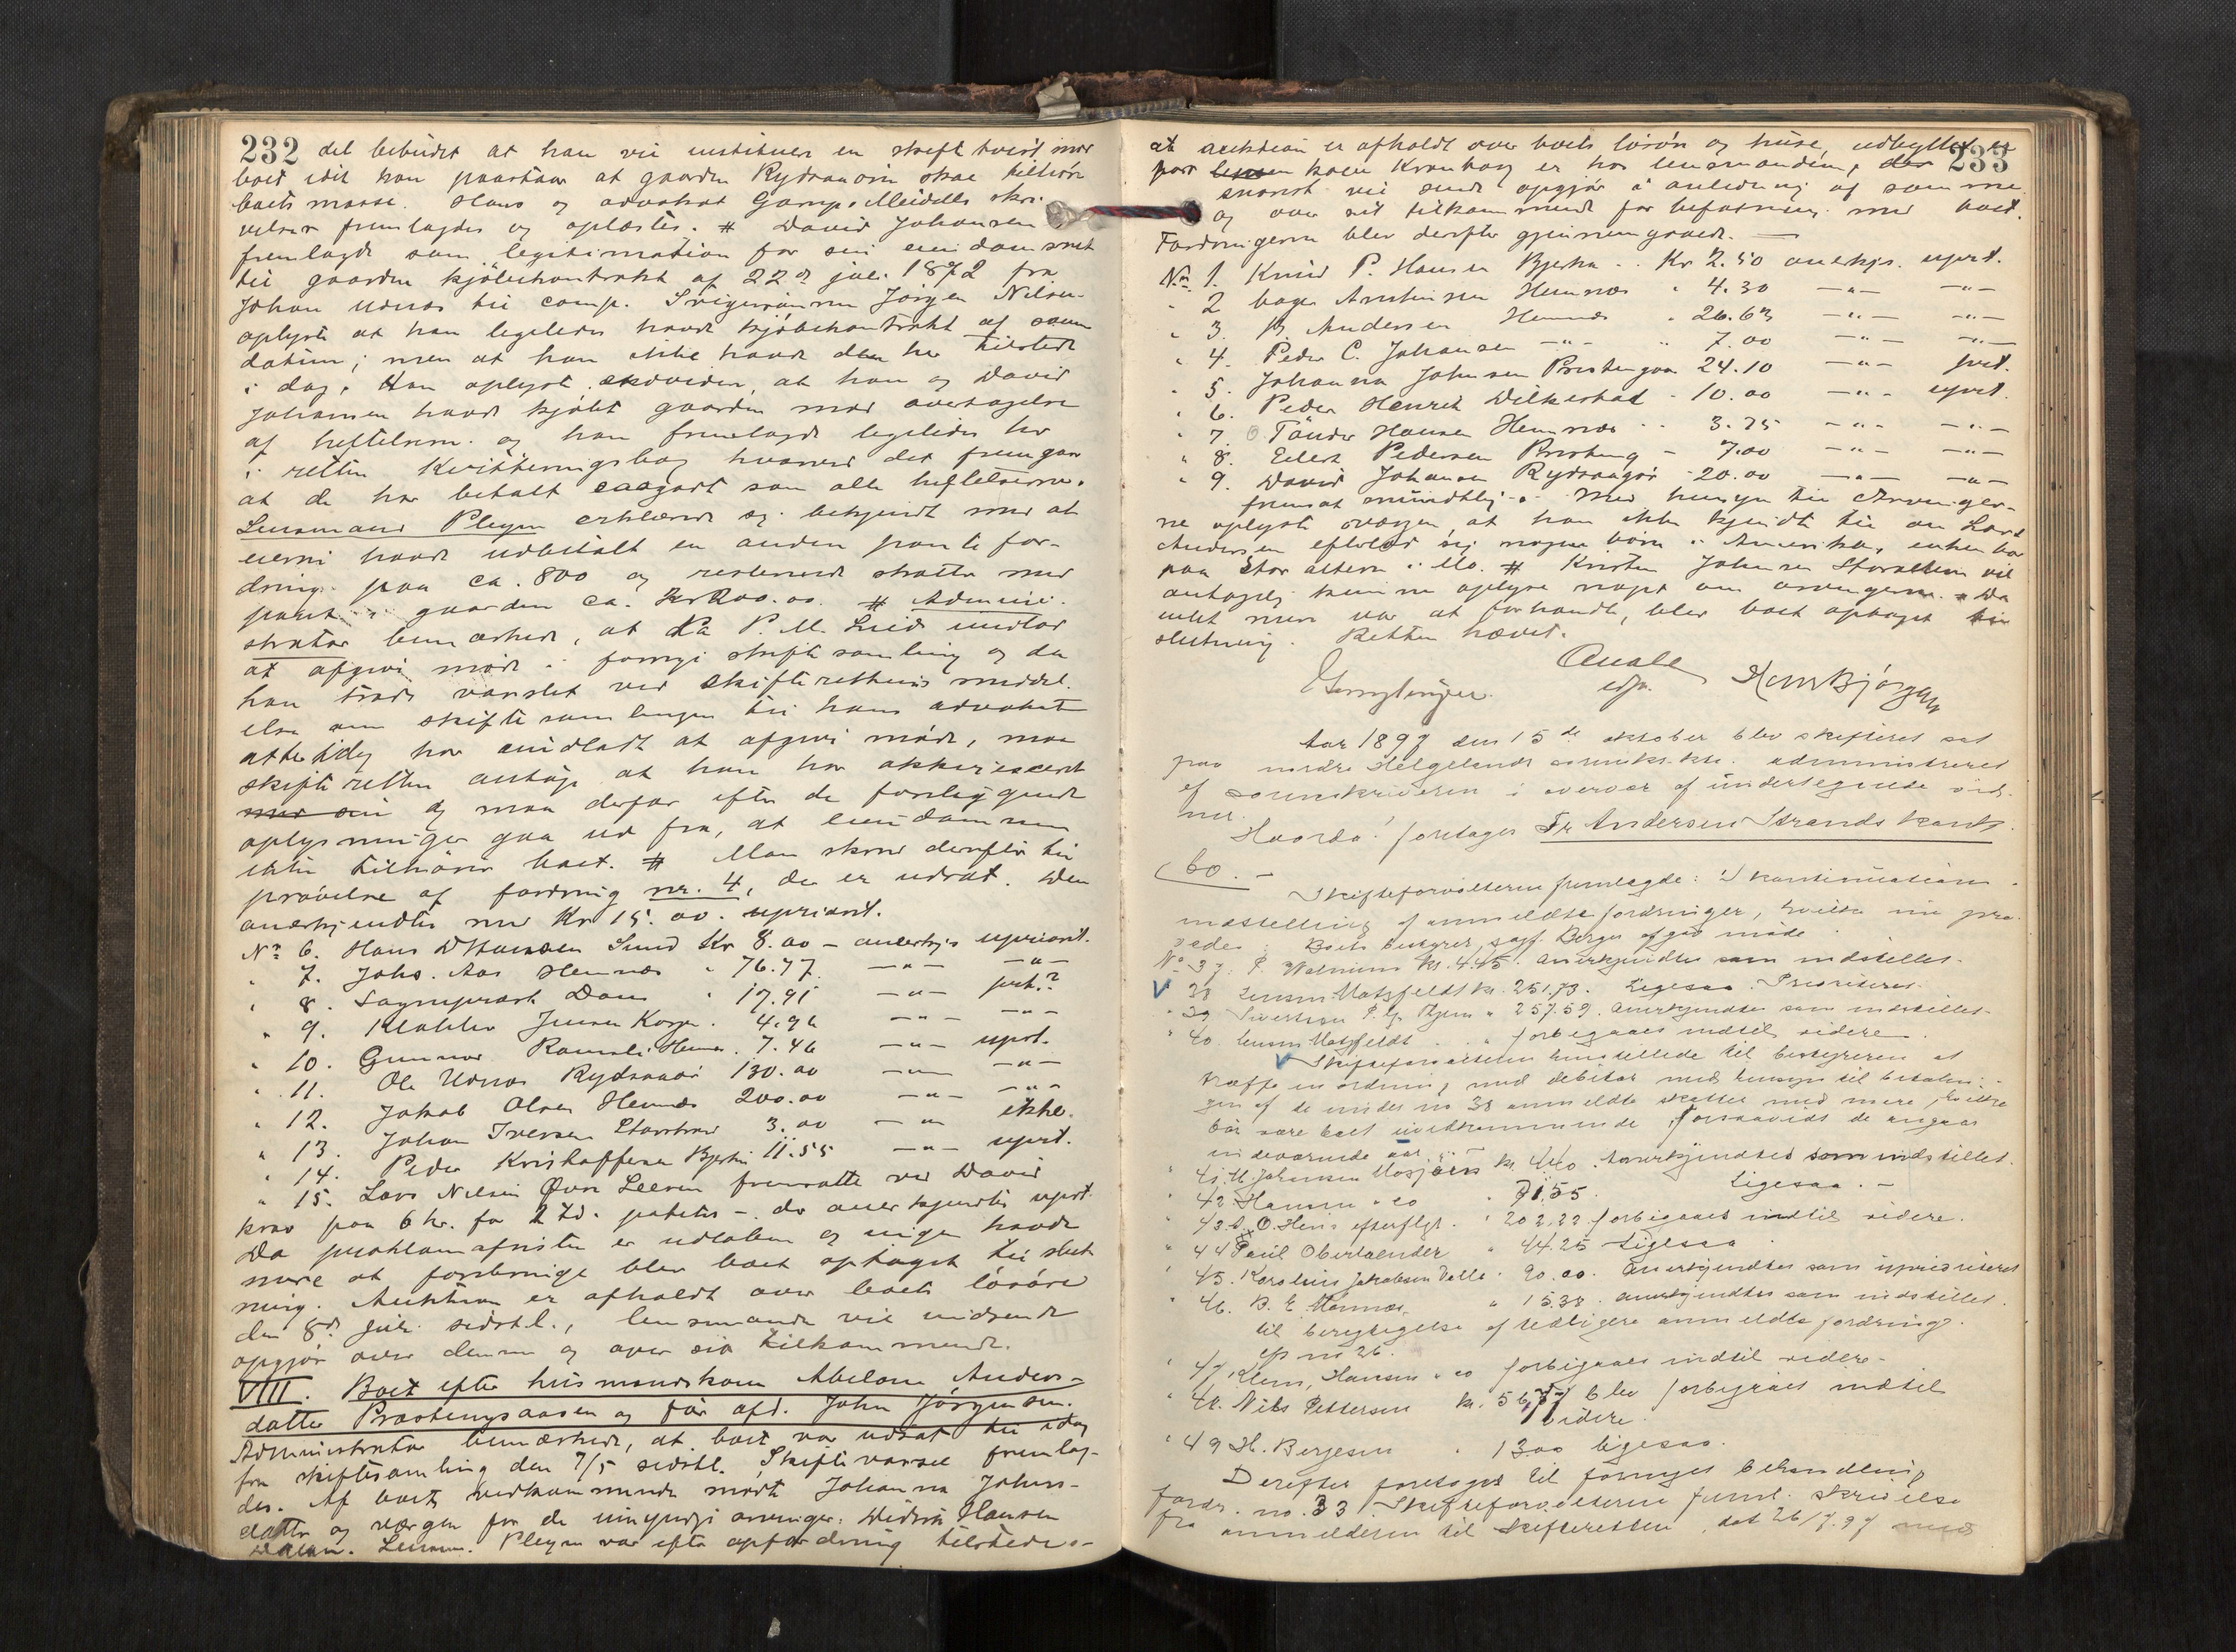 232 del bebudet at han vil instituere en skifte tvist mod
boet idet han paastaar at gaarden Rydsaaøren skal tilhøre
boets masse. Hans og advokat Gamp. Meidells skri-
velser fremlagdes og oplæstes. # David Johansen
fremlagde som legitimation for sin eiendomsret
til gaarden kjøbekontrakt af 22de juli 1872 fra
Johan Udnæs til comp. Svigersønnen Jørgen Nilsen
oplyste at han ligeledes havde kjøbekontrakt af samme
datum; men at han ikke havde den her tilstede
i dag. Han oplyste endvidere, at han og David
Johansen havde kjøbt gaarden mod overtagelse
af heftelserne og han fremlagde ligeledes her
i retten Kvitteringsbog hvorved det fremgaar
at de har betalt saagodt som alle heftelserne.
Lensmand Pleym erklærede sig bekjendt med at
eierne havde udbetalt en anden pante for-
dring paa ca. 800 og resterende skatter med
pant i gaarden ca. Kr 200.00. # Admini-
strator bemærkede, at da P. M. Lund undlod
at afgive møde i forrige skiftesamling og da
han trods varslet ved skifterettens meddel-
else om skiftesamlingen til hans advokat
atter idag har undladt at afgive møde, maa
skifteretten antage at han har akkviesceret
og maa derfor efter de foreliggende
oplysninger gaa ud fra, at eiendommen
ikke tilhører boet. # Man skred derefter til
prøvelse af fordring nr. 4, der er udsat. Den
anerkjendtes med Kr 15.00. upriorit.
No 6. Hans D Hansen Sund Kr 8.00 - anerkjs upriorit.
" 7. Johs. Aas Hemnæs " 76.77 —"— —"—
" 8. Sogneprest Dons " 17.91 —"— prt.?
" 9. Klokker Jensen Korgen " 4.96 —"— —"—
" 10. Gunnar Hemnæs. 7.46 —"— uprt.
" 11. Ole Udnæs Rydsaaør 130.00 —"— —"—
" 12. Jakob Olsen Hemnæs 200.00 —"— —"—
" 13. Johan Iversen 3.00 —"— ikke.
" 14. Peder Kristoffersen Bjerka 11.55 —"— uprt.
" 15. Lars Nilsen Øvre Leeren fremsatte ved David
krav paa 6 kr. for 2 td. poteter - der anerkjendtes uprt.
Da proklamafristen er udløben og ingen havde
mere at forebringe blev boet optaget til slut-
ning. Auktion er afholdt over boets løsøre
den 8de juli sidstl., lensmanden vil indsende
opgjør over denne og over sit tilkommende.
VIII. Boet efter husmandskone Abelone Anders-
datter Præstengsaasen og før afd. John Jørgensen.
Administrator bemærkede, at boet var udsat til idag
fra skiftesamling den 7/5 sidstl. Skiftevarsel fremlag-
des. Af boets vedkommende mødte Johanna Johns-
datter og værgen for de umyndige arvinger: Hansen
Lensm. Pleym var efter opfordring tilstede.-
233
at auktion er afholdt over boets løsøre og huse, udbyttet er
er hos lensmanden, der
snarest vil sende opgjør i anledning af samme
og over sit tilkommende for befatning med boet.
Fordringerne blev derefter gjennemgaaet. —
No 1. Knud P. Hansen Bjerka .. Kr 2.50 anerkjs. uprt.
" 2 bager Arntinsen Hemnæs " 4.30 —"— —"—
" 3. Andersen Hemnæs " 26.63 —"— —"—
" 4. Peder C. Johansen —"— " 7.00 —"— —"—
" 5. Johanna Johnsen 24.10 —"— prt.
" 6. Peder Henrik Dilkestad - 10.00 —"— uprt.
" 7. Tønder Hansen Hemnæs .. 3.75 —"— —"—
" 8. Edert Pedersen - 7.00 —"— —"—
" 9. David Johansen Rydsaagør -20.00 —"— —"—
fremsat mundtlig.- Med hensyn til arvinger-
ne oplyste værgen, at han ikke kjendte til om Lars
Andersen efterlod sig nogen børn i Amerika, enken bor
paa Stor alteren i Mo. # Kristen Johnsen Storalteren vil
antagelig kunne oplyse noget om arvingerne. # Da
intet mere var at forhandle, blev boet optaget til
slutning. Retten hævet.
Qvale
edfm.
Aar 1897 den 15de oktober blev skifteret sat
paa nordre Helgelands administreret
af sorenskriveren i overvær af undertegnede vid-
ner.
Hvorda: foretages Fr. Andersen Strands konk.
bo. -
Skifteforvalteren fremlagde: 1) kontinuation
indstilling af anmeldte fordringer, hvilke nu prø-
vedes: Boets bestyrer, sagf. Berger afgav møde.
No 37. P. Walnum kr. 4.45. Anerkjendtes som indstilles.
V 38 Lensm. Matzfeldt kr. 251.73. Ligesaa. Prioriteret.
" 39 Sivertsen " 257.59. Anerkjendtes som indstilles.
" 40. lensm. Matzfeldt . . " forbigaaes indtil videre.
V Skifteforvalteren henstillede til bestyreren at
træffe en ordning med debitor med hensyn til betalin-
gen af de under no 38 anmeldte skatter med mere, hvilke
bør være boet uvedkommende forsaavidt de angaar
indeværende aar. —
" 41. H. Johansen Mosjøen kr. 440. Anerkjendtes som indstillet.
" 42 Hansen & co " 71.55. Ligesaa. -
" 43 O. Heris efterflgr. " 202.22 forbigaaes indtil videre.
" 44 Paul Oberlaender " 44.25 Ligesaa
" 45. Karolius Jakobsen Valle " 90.00. Anerkjendtes som uprioriteret
" 46. B. E. Mannæs " 15.38. Anerkjendtes som indstillet.
til berigtigelse af tidligere anmeldte fordring.
cfr no 26.
" 47 Klem, Hansen & co forbigaaes indtil videre.
" 48. Nils Pettersen kr. 56,77 blev forbigaaet indtil
videre.
" 49 H. Berjesen " 1300 ligesaa.
Derefter foretoges til fornyet behandling
fordr. no. 33. Skifteforvalteren freml. skrivelse
fra anmelderen til skifteretten, dat 26/7.97 med